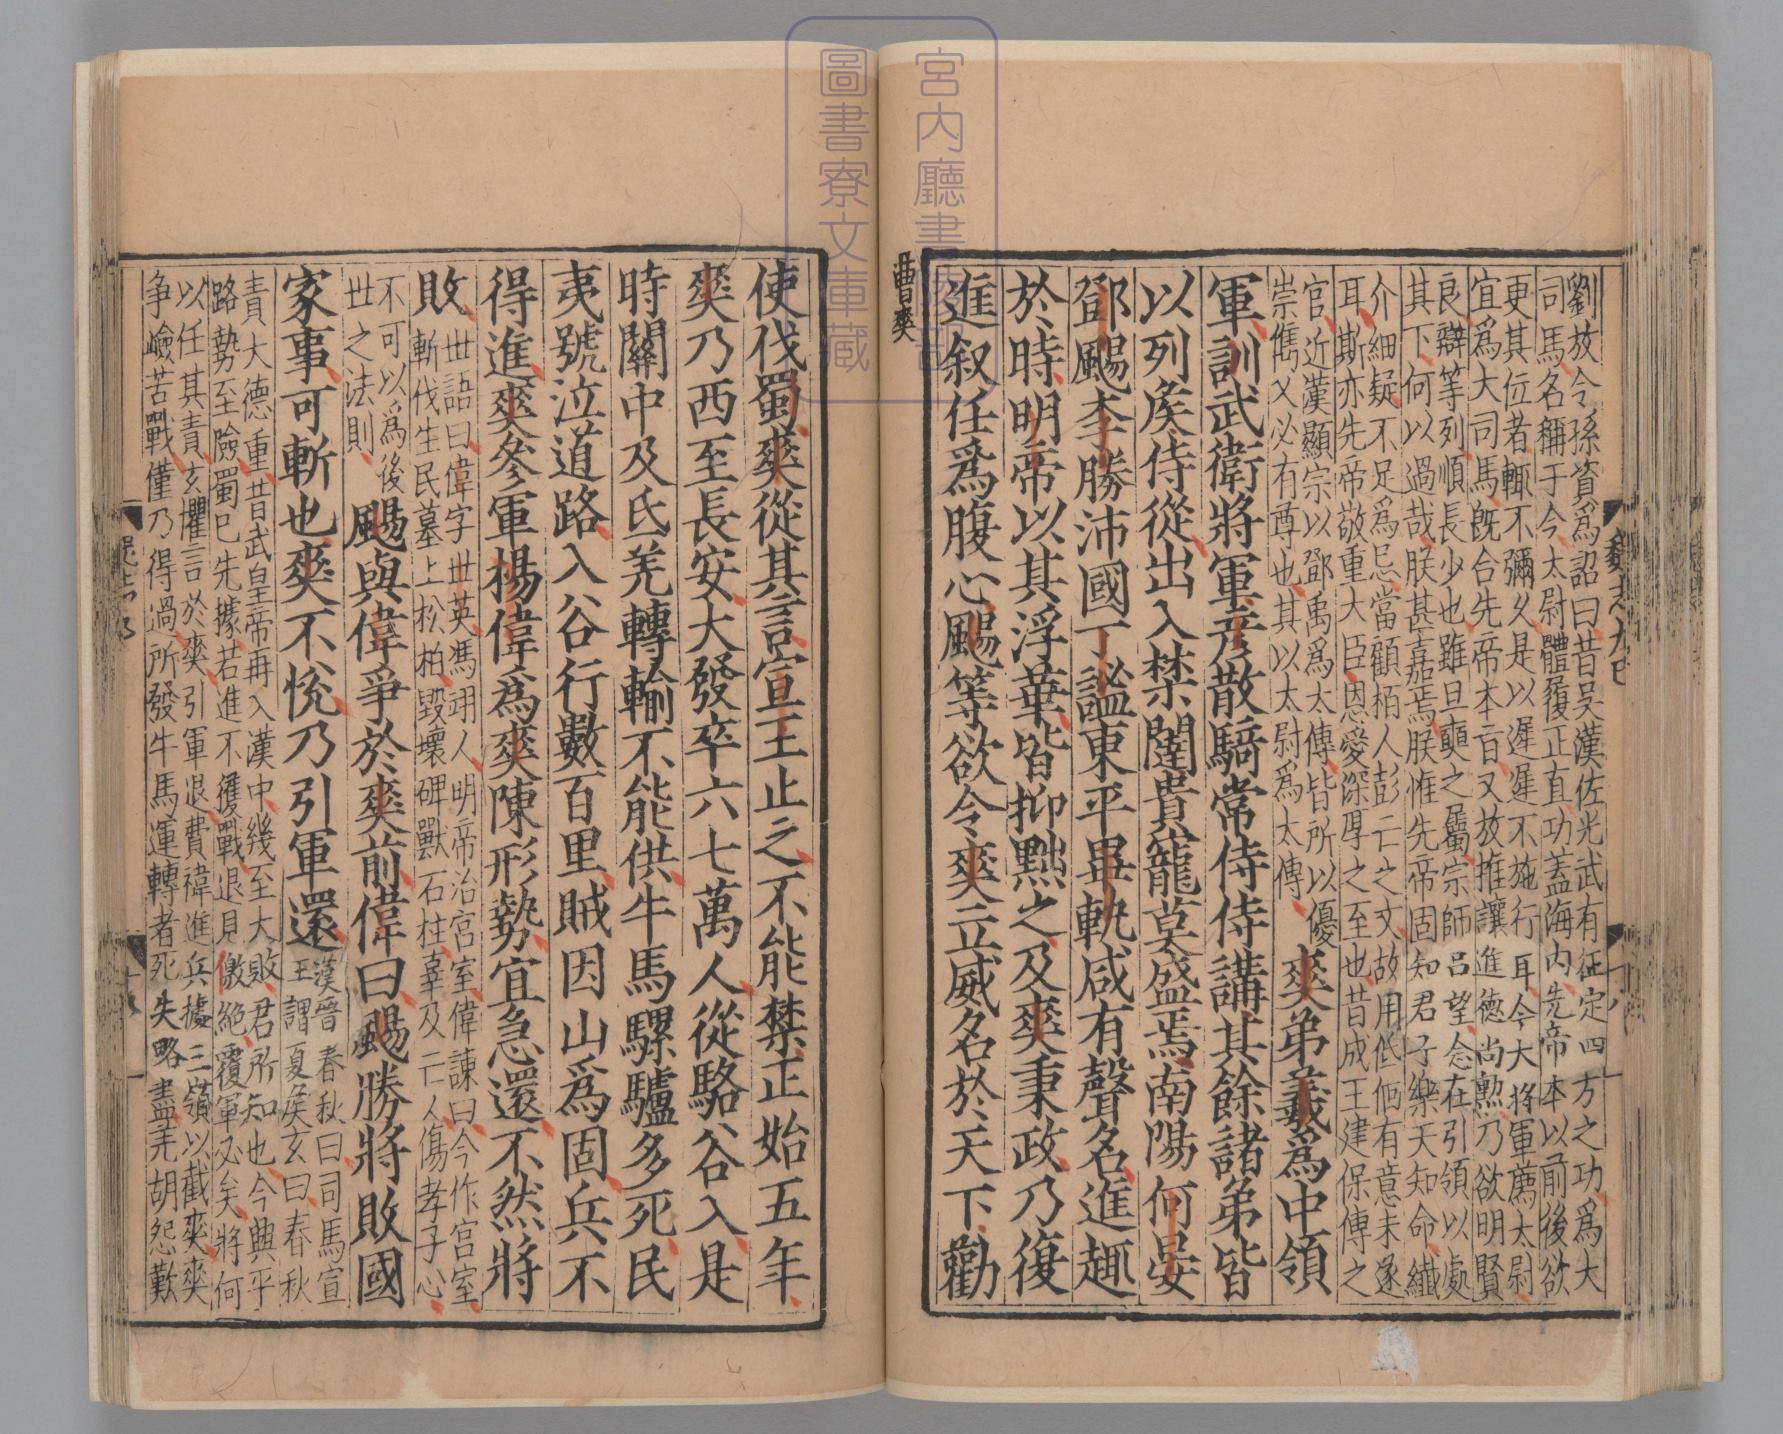 劉放令孫資爲詔曰昔吴漢佐光武有征定四方之功爲大
司馬名稱于今太尉體履正直功蓋海内先帝本以前後欲
更其位者輒不彌久是以遲遲不施行耳今大將軍薦太尉
宜爲大司馬旣合先帝本旨又放推讓進德尚勲乃欲明賢
良辯等列順長少也雖旦奭之屬宗師吕望念在引領以處
其下何以過哉朕甚嘉焉朕惟先帝固知君子樂天知命纎
介細疑不足爲忌當顧栢人彭亡之文故用低佪有意未遂
耳斯亦先帝敬重大臣恩愛深厚之至也昔成王建保傅之
官近漢顯宗以鄧禹爲太傅皆所以優
崇儁乂必有尊也其以太尉爲太傅
爽弟羲爲中領
軍訓武衛將軍彦散騎常侍侍講其餘諸弟皆
以列侯侍從出入禁闥貴寵莫盛焉南陽何晏
鄧颺李勝沛國丁謐東平畢軌咸有聲名進趣
於時明帝以其浮華皆抑黜之及爽秉政乃復
進叙任爲腹心颺等欲令爽立威名於天下勸
曹爽
使伐蜀爽從其言宣王止之不能禁正始五年
爽乃西至長安大發卒六七萬人從駱谷入是
時關中及氐羌轉輸不能供牛馬騾驢多死民
夷號泣道路入谷行數百里賊因山爲固兵不
得進爽參軍楊偉爲爽陳形勢宜急還不然將
敗
世語曰偉字世英馮翊人明帝治宮室偉諫曰今作宮室
斬伐生民墓上松柏毀壞碑獸石柱辜及亡人傷孝子心
不可以爲後
世之法則
颺與偉爭於爽前偉曰颺勝將敗國
家事可斬也爽不悅乃引軍還
漢晉春秋曰司馬宣
王謂夏侯玄曰春秋
責大德重昔武皇帝再入漢中幾至大敗君所知也今興平
路勢至險蜀已先據若進不獲戰退見徼絶覆軍必矣將何
以任其責玄懼言於爽引軍退費禕進兵據三嶺以截爽爽
争嶮苦戰僅乃得過所發牛馬運轉者死失略盡羌胡怨歎
宮内廳書陵部
圖書寮文庫藏